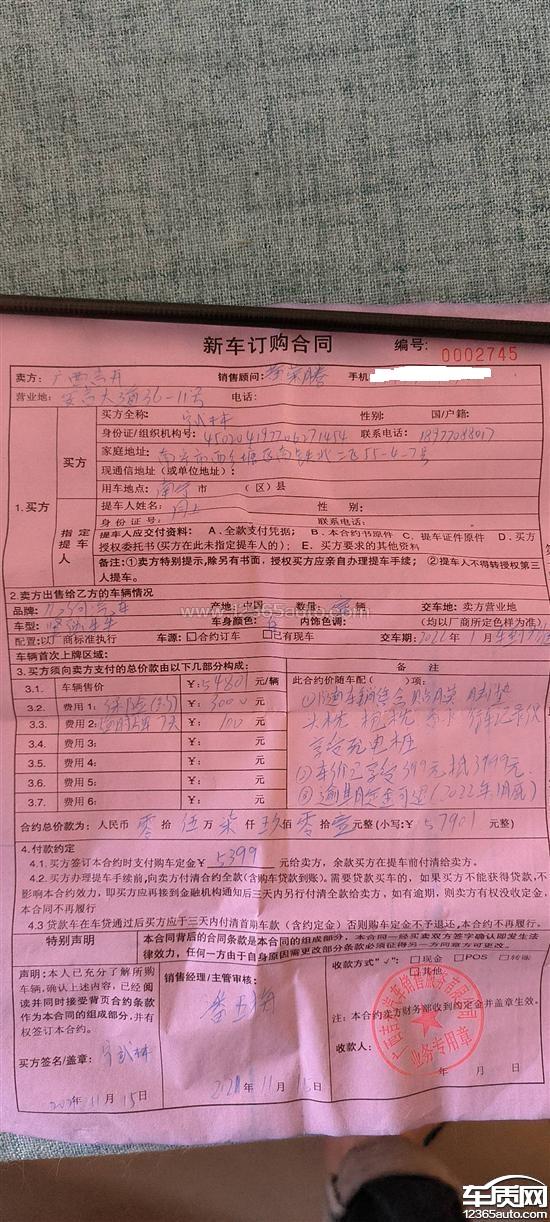 新车订购合同
编号:
0002745
卖方:
销售顾问:
手机
营业地: 大道36-11号
电话:
买方全称:
性别:
国/户籍:
身份证/组织机构号:
联系电话:
家庭地址: 南宁市西乡塘区
现通信地址 (或单位地址):
用车地点: 南宁 市 (区) 县
1.买方
买方
提车人姓名: 同上
性 别:
身 份 证 号:
联系电话:
指定
提车
人
提车人应交付资料: A、全款支付凭据; B、本合同约书原件 C、提车证件原件 D、买方
授权委托书(买方在此未指定提车人的); E、买方要求的其他资料
备注:①卖方特别提示,除另有书面,授权买方应亲自办理提车手续; ②提车人不得转授权第三人提车。
2.卖方出售给乙方的车辆情况
品牌: 汽车
产地: 中国
数量: 辆
交车地: 卖方营业地
车型:
车身颜色: 白
内饰色调:
(均以厂商所定色样为准)
配置: 以厂商标准执行
车源: 合约订车 已有现车
交车期: 2022 年 1 月
车辆首次上牌区域:
3.买方须向卖方支付的总价款由以下几部分构成:
备 注
3.1. 车辆售价 ¥: 54801 元/辆
此合约价随车配( )项:
3.2. 费用1: 保险(约) ¥: 3000 元
3.3. 费用2: 临时牌 ¥: 100 元
3.4. 费用3: ¥: 元
3.5. 费用4: ¥: 元
3.6. 费用5: ¥: 元
3.7. 费用6: ¥: 元
头枕 抱枕 行车记录仪
含充电桩
②车价已含399元抵3999元
③逾期定金可退(2022年1月底)
合约总价款为: 人民币 零 拾 伍 万 柒 仟 玖 佰 零 拾 壹 元整 (小写: ¥ 57901 元整)
4.付款约定
4.1. 买方签订本合约时支付购车定金¥ 5399 元给卖方, 余款买方在提车前付清给卖方。
4.2. 买方办理提车手续前,向卖方付清合约全款(含购车贷款到账)、需要贷款买车的, 如果买方不能获得贷款,不
影响本合约效力, 即买方应再接到金融机构通知后三天内另行付清全款给卖方, 如有逾期, 则卖方有权没收定金,
本合同不再履行
4.3 贷款车在车贷通过后买方应于三天内付清首期车款 (含约定金) 否则购车定金不予退还,本合约不再履行。
特别声明
本合同背后的合同条款是本合同的组成部分, 本合同一经买卖双方签字确认即发生法
律效力, 任何一方由于自身原因需更改部分条款必须征得另一方同意方可更改。
声明: 本人已充分了解所购
车辆, 确认上述内容, 已经阅
读并同时接受背页合约条款
作为本合同的组成部分, 并有
权签订本合约。
买方签名/盖章:
2021 年 11 月 15 日
销售经理/主管审核:
2021 年 11 月 15 日
收款方式"√": 现金 POS 转账
其他
注: 本合约卖方财务部收到约定金并盖章生效。
收款人:
业务专用章
年 月 日
www.12365auto.com
车质网
12365auto.com